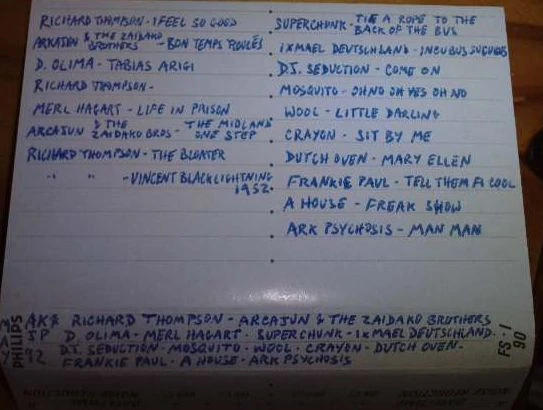 RICHARD THOMPSON - I FEEL SO GOOD
ARKAJUN & THE ZAIDAKO BROTHERS - BON TEMPS ROULÉS
D. OLIMA - TABIAS ARIGI
RICHARD THOMPSON -
MERL HAGART - LIFE IN PRISON
ARCAJUN & THE ZAIDAKO BROS - THE MIDLAND ONE STEP
RICHARD THOMPSON - THE BLOATER
" " - VINCENT BLACK LIGHTNING 1952.
SUPERCHUNK - TIE A ROPE TO THE BACK OF THE BUS
IXMAEL DEUTSCHLAND - INCUBUS SUCUBUS
D.J. SEDUCTION - COME ON
MOSQUITO - OH NO OH YES OH NO
WOOL - LITTLE DARLING
CRAYON - SIT BY ME
DUTCH OVEN - MARY ELLEN
FRANKIE PAUL - TELL THEM FI COOL
A HOUSE - FREAK SHOW
ARK PSYCHOSIS - MAN MAN
AK& RICHARD THOMPSON - ARCAJUN & THE ZAIDAKO BROTHERS
JP D. OLIMA - MERL HAGART - SUPERCHUNK - IXMAEL DEUTSCHLAND -
92 D.J. SEDUCTION - MOSQUITO - WOOL - CRAYON - DUTCH OVEN -
FRANKIE PAUL - A HOUSE - ARK PSYCHOSIS
MAY
PHILIPS
FS-I
90